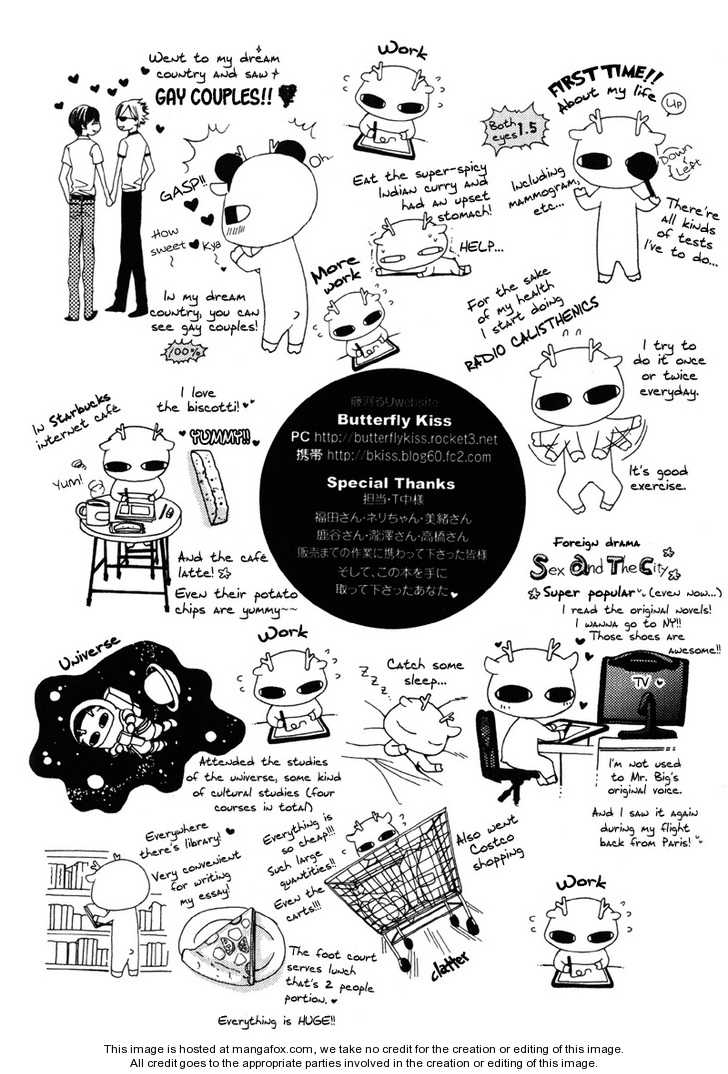 Went to my dream
country and saw
GAY COUPLES!!
GASP!!
Oh
How
sweet
Kya
In my dream
country, you can
see gay couples!
100%
Work
Eat the super-spicy
Indian curry and
had an upset
stomach!
HELP...
FIRST TIME!!
About my life
Up
Both
eyes 1.5
Down
Left
Including
mammogram,
etc...
There're
all kinds
of tests
I've to do...
More
work
For the sake
of my health
I start doing
RADIO CALISTHENICS
I try to
do it once
or twice
everyday.
It's good
exercise.
In Starbucks
internet café
I love
the biscotti!
YUMMY!!
Yum!
And the café
latte!
Even their potato
chips are yummy~~
藤河るりwebsite
Butterfly Kiss
PC http://butterflykiss.rocket3.net
携帯 http://bkiss.blog60.fc2.com
Special Thanks
担当・T中様
福田さん・ネリちゃん・美緒さん
鹿谷さん・瀧澤さん・高橋さん
販売までの作業に携わって下さった皆様
そして、この本を手に
取って下さったあなた
Foreign drama
Sex And The City
Super popular (even now...)
I read the original novels!
I WANNA GO TO NY!!
Those shoes are
awesome!!
TV
I'm not used
to Mr. Big's
original voice.
And I saw it again
during my flight
back from Paris!
Universe
Work
Catch some
sleep...
Z
Z
Z
Attended the studies
of the universe, some kind
of cultural studies (four
courses in total)
Everywhere
there's library!
Very convenient
for writing
my essay!
Everything is
so cheap!!!
Such large
quantities!!
Even the
carts!!!
Also went
Costco
shopping
clatter
The foot court
serves lunch
that's 2 people
portion.
Everything is HUGE!!
Work
This image is hosted at mangafox.com, we take no credit for the creation or editing of this image.
All credit goes to the appropriate parties involved in the creation or editing of this image.